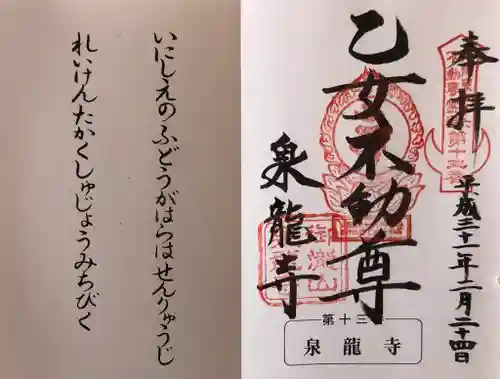 奉拝
乙女不動尊
泉龍寺
平成三十一年二月二十四日
第十三番
泉龍寺
いにしえのふどうがはらはせんりゅうじ
れいけんたかくしゅじょうみちびく